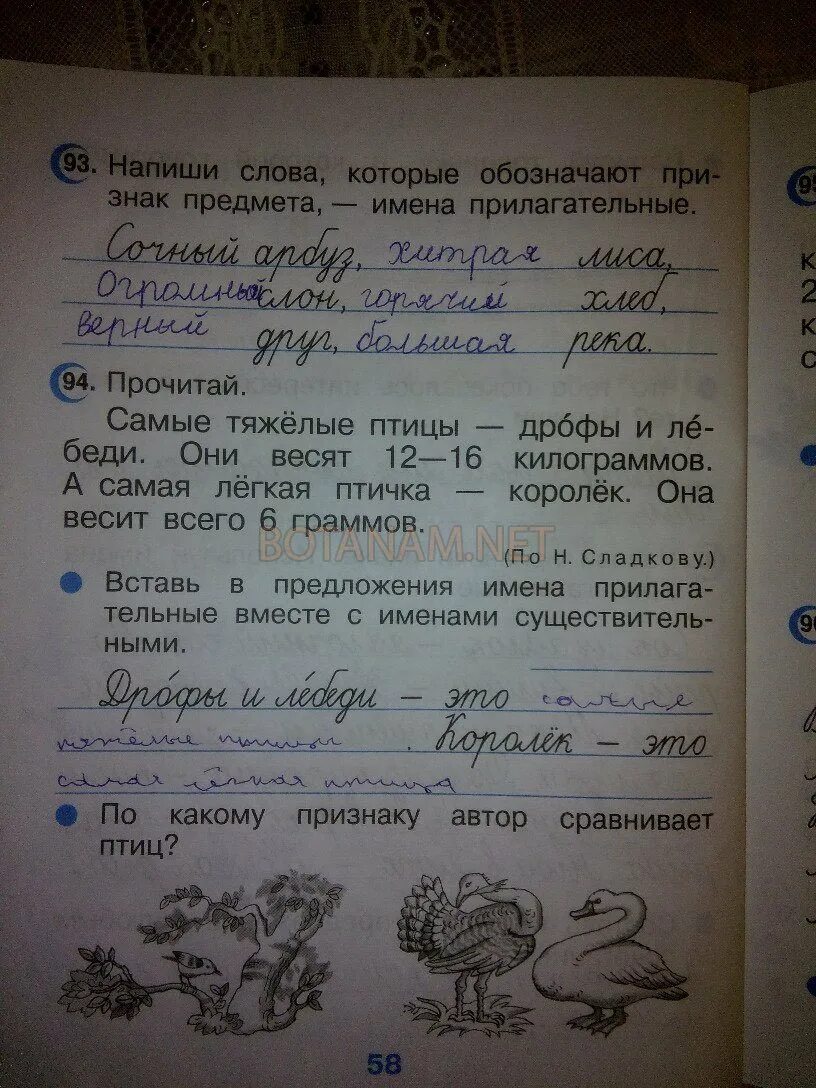 93. Напиши слова, которые обозначают при-
знак предмета, — имена прилагательные.
Сочный арбуз, хитрая лиса,
Огромный слон, горячий хлеб,
верный друг, большая река.
94. Прочитай.
Самые тяжёлые птицы — дро́фы и ле́-
беди. Они весят 12—16 килограммов.
А самая лёгкая птичка — королёк. Она
весит всего 6 граммов.
BOTANAM.NET
(По Н. Сладкову.)
Вставь в предложения имена прилага-
тельные вместе с именами существитель-
ными.
Дро́фы и ле́беди — это самые
тяжёлые птицы. Королёк — это
самая лёгкая птица
По какому признаку автор сравнивает
птиц?
58
95
к
2
к
с
96